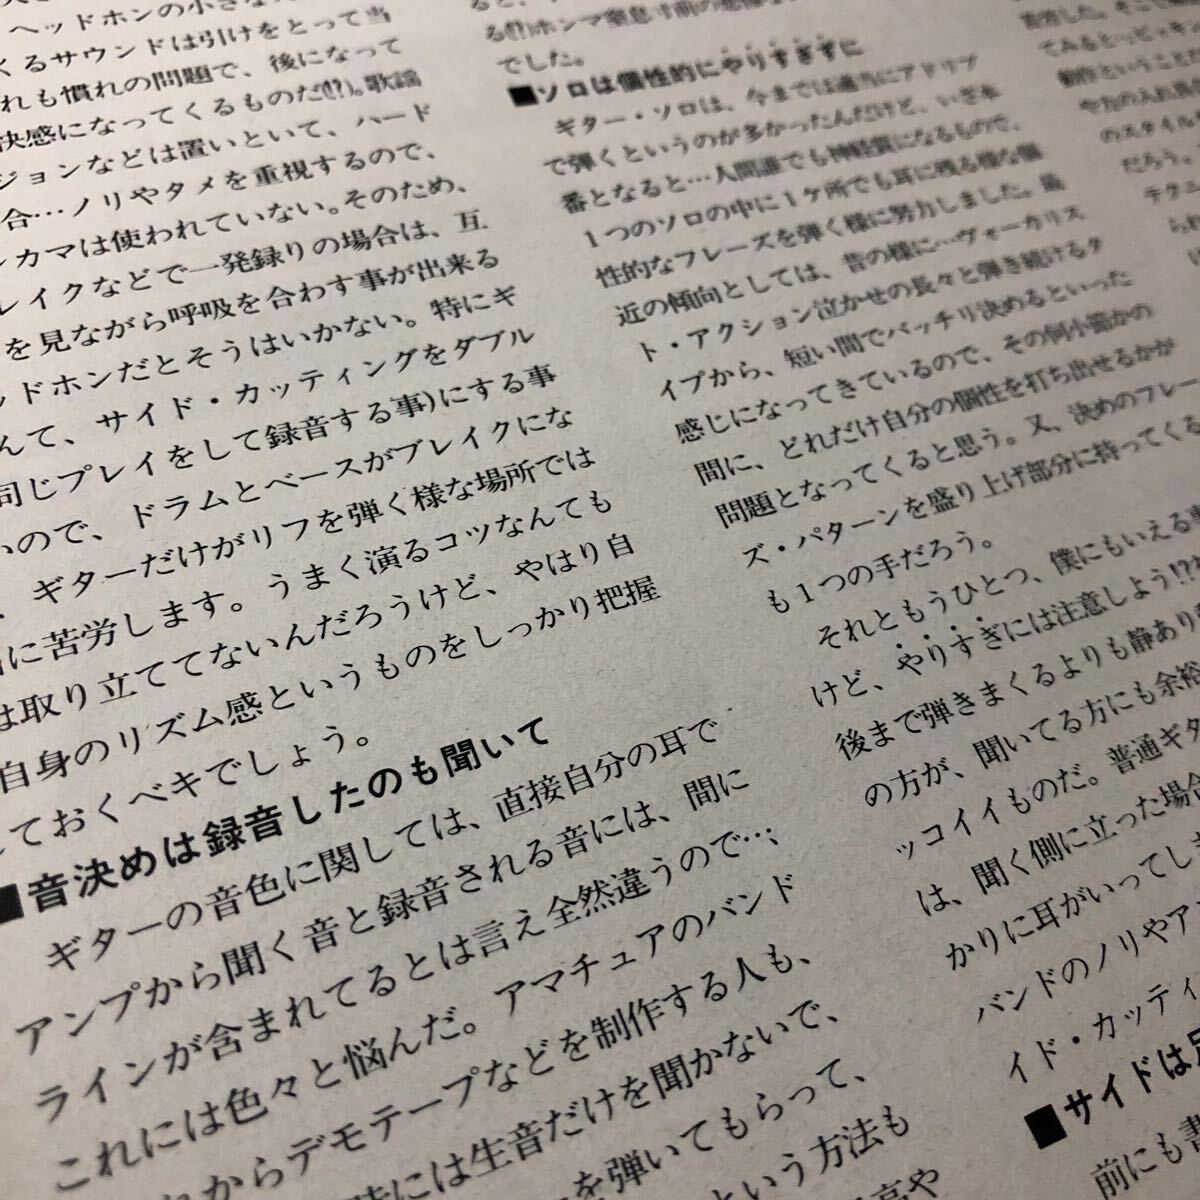 ヘッドホンの小さな
くるサウンドは引けをとって当
れも慣れの問題で、後になって
快感になってくるものだ(!?)。歌謡
ジョンなどは置いといて、ハード
合…ノリやタメを重視するので、
ンカマは使われていない。そのため、
レイクなどで一発録りの場合は、互
を見ながら呼吸を合わす事が出来る
ッドホンだとそうはいかない。特にギ
んて、サイド・カッティングをダブル
同じプレイをして録音する事)にする事
いので、ドラムとベースがブレイクにな
、ギターだけがリフを弾く様な場所では
に苦労します。うまく演るコツなんても
は取り立ててないんだろうけど、やはり自
自身のリズム感というものをしっかり把握
しておくべキでしょう。
■音決めは録音したのも聞いて
ギターの音色に関しては、直接自分の耳で
アンプから聞く音と録音される音には、間に
ラインが含まれてるとは言え全然違うので…、
これには色々と悩んだ。アマチュアのバンド
からデモテープなどを制作する人も、
時には生音だけを聞かないで、
を弾いてもらって、
という方法も
高や
る(!!)ホンマ窒息寸前の
でした。
■ソロは個性的にやりすぎずに
ギター・ソロは、今までは適当にアドリブ
で弾くというのが多かったんだけど、いざ本
番となると…人間誰でも神経質になるもので、
1つのソロの中に1ヶ所でも耳に残る様な個
性的なフレーズを弾く様に努力しました。最
近の傾向としては、昔の様に…ヴォーカリス
ト・アクション泣かせの長々と弾き続けるタ
イプから、短い間でバッチリ決めるといった
感じになってきているので、その何小節かの
間に、どれだけ自分の個性を打ち出せるかが
問題となってくると思う。又、決めのフレー
ズ・パターンを盛り上げ部分に持ってくる
も1つの手だろう。
それともうひとつ、僕にもいえる事
けど、やりすぎには注意しよう!?
後まで弾きまくるよりも静あり
の方が、聞いてる方にも余裕
ッコイイものだ。普通ギタ
は、聞く側に立った場合
かりに耳がいってしま
バンドのノリやアン
イド・カッティ
■サイドは
前にも書
てみるとッピッキン
動作ということか
や力の入れ具
のスタイル
だろう。
テクニ
られ